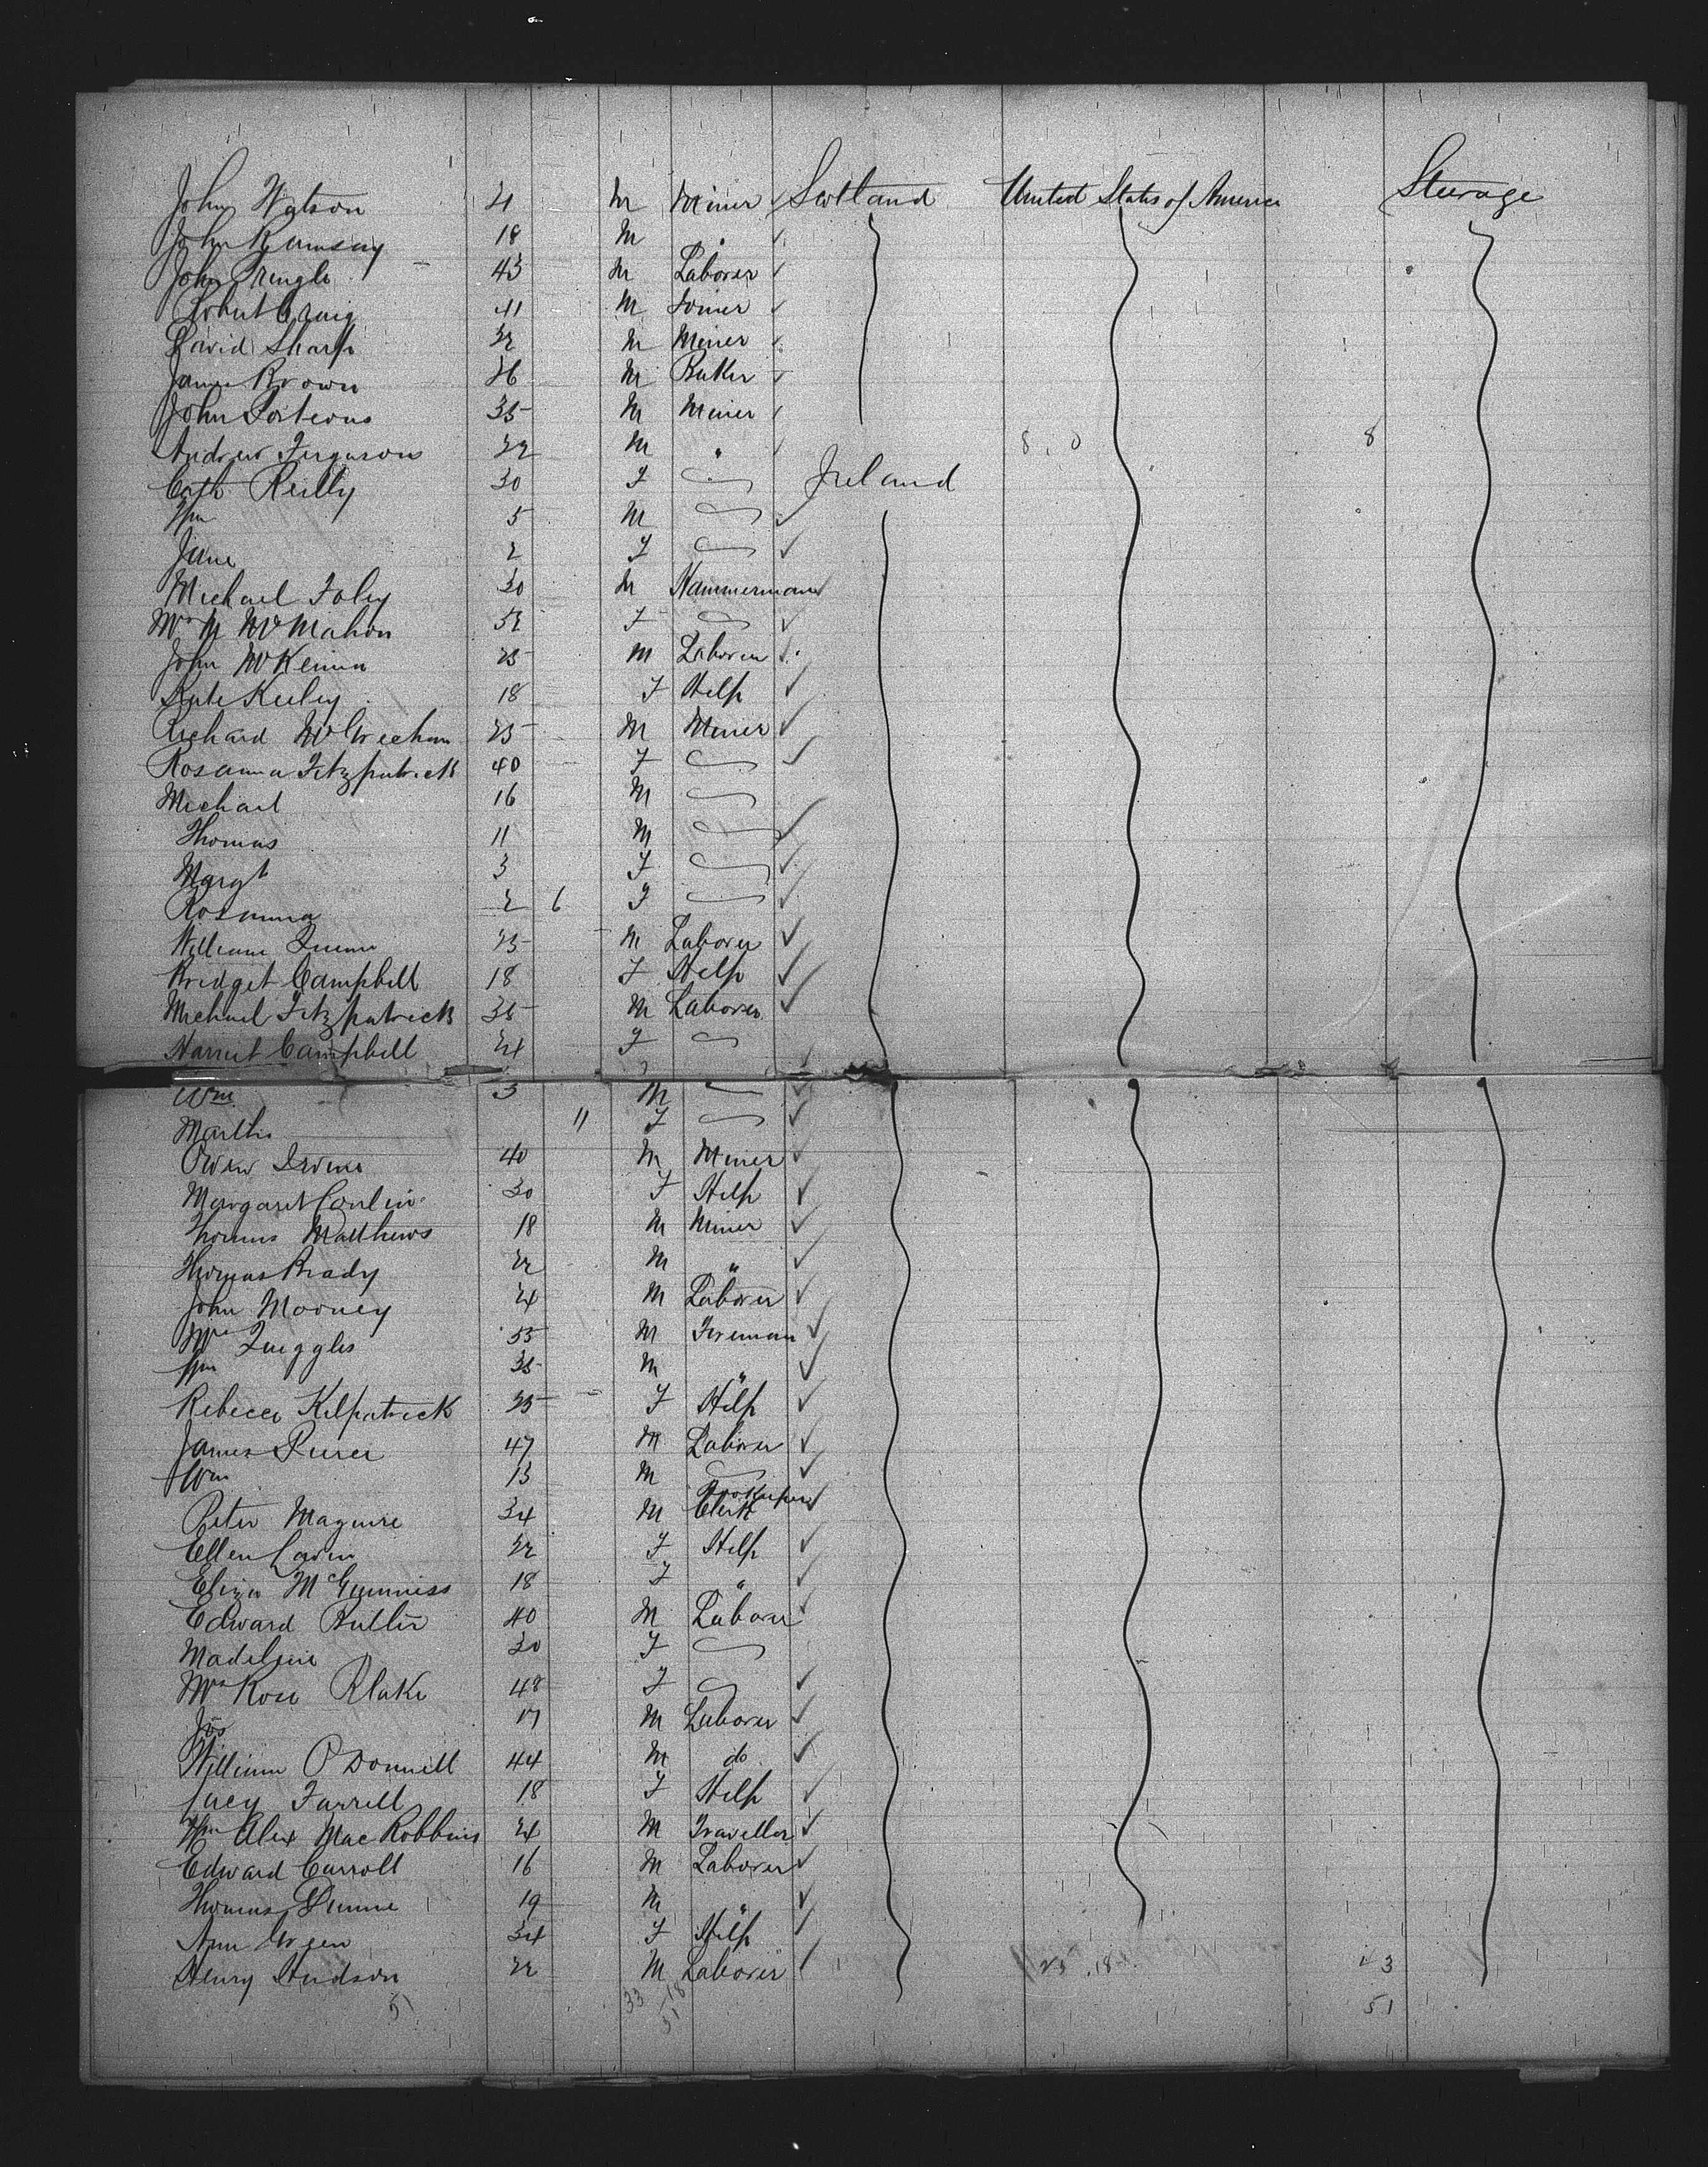 John Watson 21 M Miner Scotland United States of America Steerage
John Ramsay 18 M "
John Pringle 43 M Laborer
Robert Craig 41 M Joiner
David Sharp 32 M Miner
James Brown 26 M Baker
John Porteous 35 M Miner
Andrew Ferguson 22 M " 8 . 0 8
Cath Reilly 30 F Ireland
Wm 5 M
Jane 2 F
Michael Foley 30 M Hammerman
Mrs M McMahon 52 F
John McKenna 25 M Laborer
Kate Keeley 18 F Help
Richard 25 M Miner
Rosanna Fitzpatrick 40 F
Michael 16 M
Thomas 11 M
Margt 3 F
Rosanna 2 6 F
William Quinn 25 M Laborer
Bridget Campbell 18 F Help
Michael Fitzpatrick 35 M Laborer
Harriet Campbell 24 F
Wm 3 M
Martha 11 F
Owen Irvine 40 M Miner
Margaret Conlin 30 F Help
Thomas Matthews 18 M Miner
Thomas Brady 22 M "
John Mooney 24 M Laborer
Quiggles 55 M Fireman
Wm 35 M "
Rebecca Kilpatrick 25 F Help
James 47 M Laborer
Wm 13 M
Peter Maguire 34 M Bookeeper Clerk
Ellen 22 F Help
Eliza McGuinniss 18 F "
Edward Butler 40 M Laborer
Madeline 30 F
Mrs Rose Blake 48 F
Jas 17 M Laborer
William O'Donnell 44 M do
Lucy Farrell 18 F Help
Wm Alex Mac Robbins 24 M Traveller
Edward Carroll 16 M Laborer
Thomas Dunne 19 M "
Ann 34 F Help
Henry Hudson 22 M Laborer 25 . 18 3
51 33 18 51 51